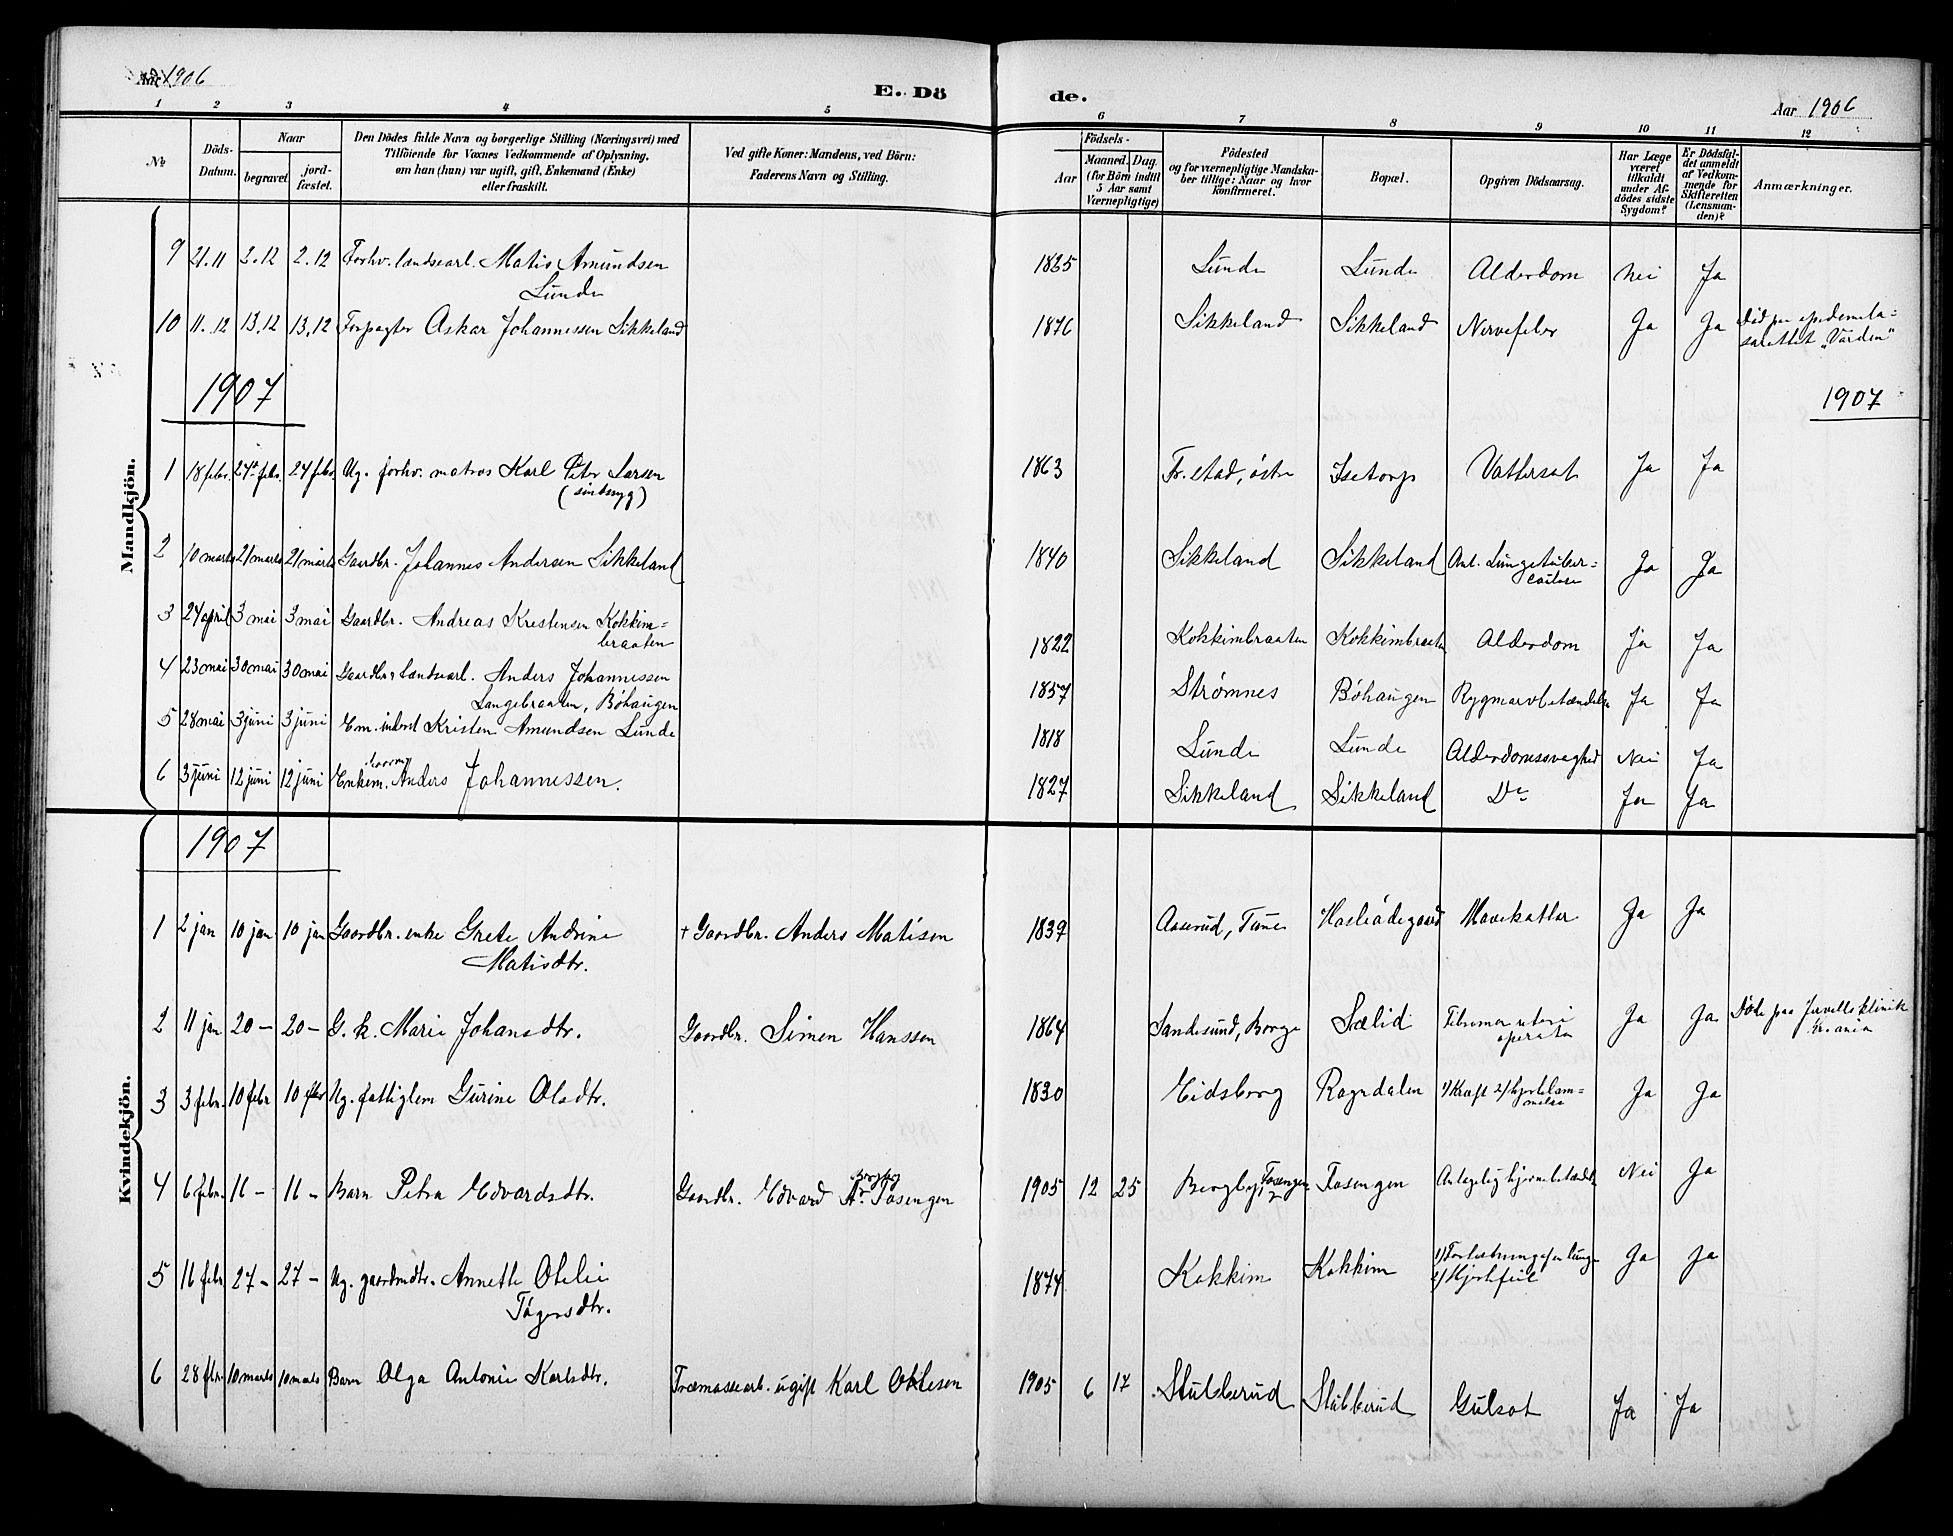 Aar 1906
E. Dö
de.
Aar 1906
1 2 3 4 5 6 7 8 9 10 11 12
No
Döds-
Datum.
Naar
begravet
jord-
fæstet.
Den Dödes fulde Navn og borgerlige Stilling (Næringsvei) med
Tilföiende for Voxnes Vedkommende af Oplysning,
om han (hun) var ugift, gift, Enkemand (Enke)
eller fraskilt.
Ved gifte Koner: Mandens, ved Börn:
Faderens Navn og Stilling.
Födsels-
Aar
Maaned. Dag.
(for Börn indtil
5 Aar samt
Værnepligtige)
Födested
og for værnepligtige Mandska-
ber tillige: Naar og hvor
konfirmeret.
Bopæl.
Opgiven Dödsaarsag.
Har Læge
været
tilkaldt
under Af-
dödes sidste
Sygdom?
Er Dödsfal-
det anmeldt
af Vedkom-
mende for
Skifteretten
(Lensman-
den)?
Anmærkninger.
Mandkjön.
9 21.11 2.12 2.12 Forhv. landsearb. Matis Amundsen 1825 Lunde Lunde Alderdom Nei Ja
Lunde
10 11.12 13.12 13.12 Forpagter Oskar Johannessen Sikkeland 1876 Sikkeland Sikkeland Nervefeber Ja Ja Död paa epidemila=
salettet "Varden"
1907
1907
1 18 febr. 24 febr. 24 febr. Ug. forhv. matros Karl Peter Larsen 1863 Fr.stad, östre Isetorp Vattersot Ja Ja
(sindssyg)
2 10 marts 21 marts 21 marts Gaardbr. Johannes Andersen Sikkeland 1840 Sikkeland Sikkeland Ant. Lungetuber=
culose Ja Ja
3 24 april 3 mai 3 mai Gaardbr. Andreas Kristensen Kokkim=
braaten 1822 Kokkimbraaten Kokkimbraaten Alderdom Ja Ja
4 23 mai 30 mai 30 mai Gaardbr. & landsearb. Anders Johannessen
Langebraaten, Böhaugen 1857 Strømnes Böhaugen Rygmarvbetændelse Ja Ja
5 28 mai 3 juni 3 juni Em. inderst Kristen Amundsen Lunde 1818 Lunde Lunde Alderdomssvaghed Nei Ja
6 3 juni 12 juni 12 juni Enkem. Anders Johannessen. 1827 Sikkeland Sikkeland Do Ja Ja
Kvindekjön.
1907
1 2 jan 10 jan 10 jan Gaardbr. enke Grete Andrine + Gaardbr. Anders Matisen 1839 Aaserud, Tune Haslеödegaard Mavekatar Ja Ja
Matisdtr.
2 11 jan 20 – 20 – G. k. Marie Johansdtr. Gaardbr. Simen Hanssen 1864 Sandesund, Borge Sælid Fibroma uteri
operata Ja Ja Döde paa Jervells klinik
Kr.ania
3 3 febr. 10 febr 10 febr Ug. fattiglem Gurine Olsdtr. 1830 Eidsberg Ragndalen 1/ Kræft 2/ hjertelam=
melse Ja Ja
4 6 febr. 16 – 16 – Barn Petra Edvardsdtr. Gaardbr. Edvard Ar. Bergby Tosengen 1905 12 25 Bergby, Tosengen Tosengen Antagelig hjernebetændelse Nei Ja
5 16 febr 27 – 27 – Ug. gaardmdtr. Annette Otelie 1874 Kokkim Kokkim Ja Ja
2/ Hjertefeil
Tögersdtr.
6 28 febr. 10 marts 10 marts Barn Olga Antonie Karlsdtr. Træmassearb. ugift Karl Ottesen 1905 6 17 Stubberud Stubberud Gulsot Ja Ja